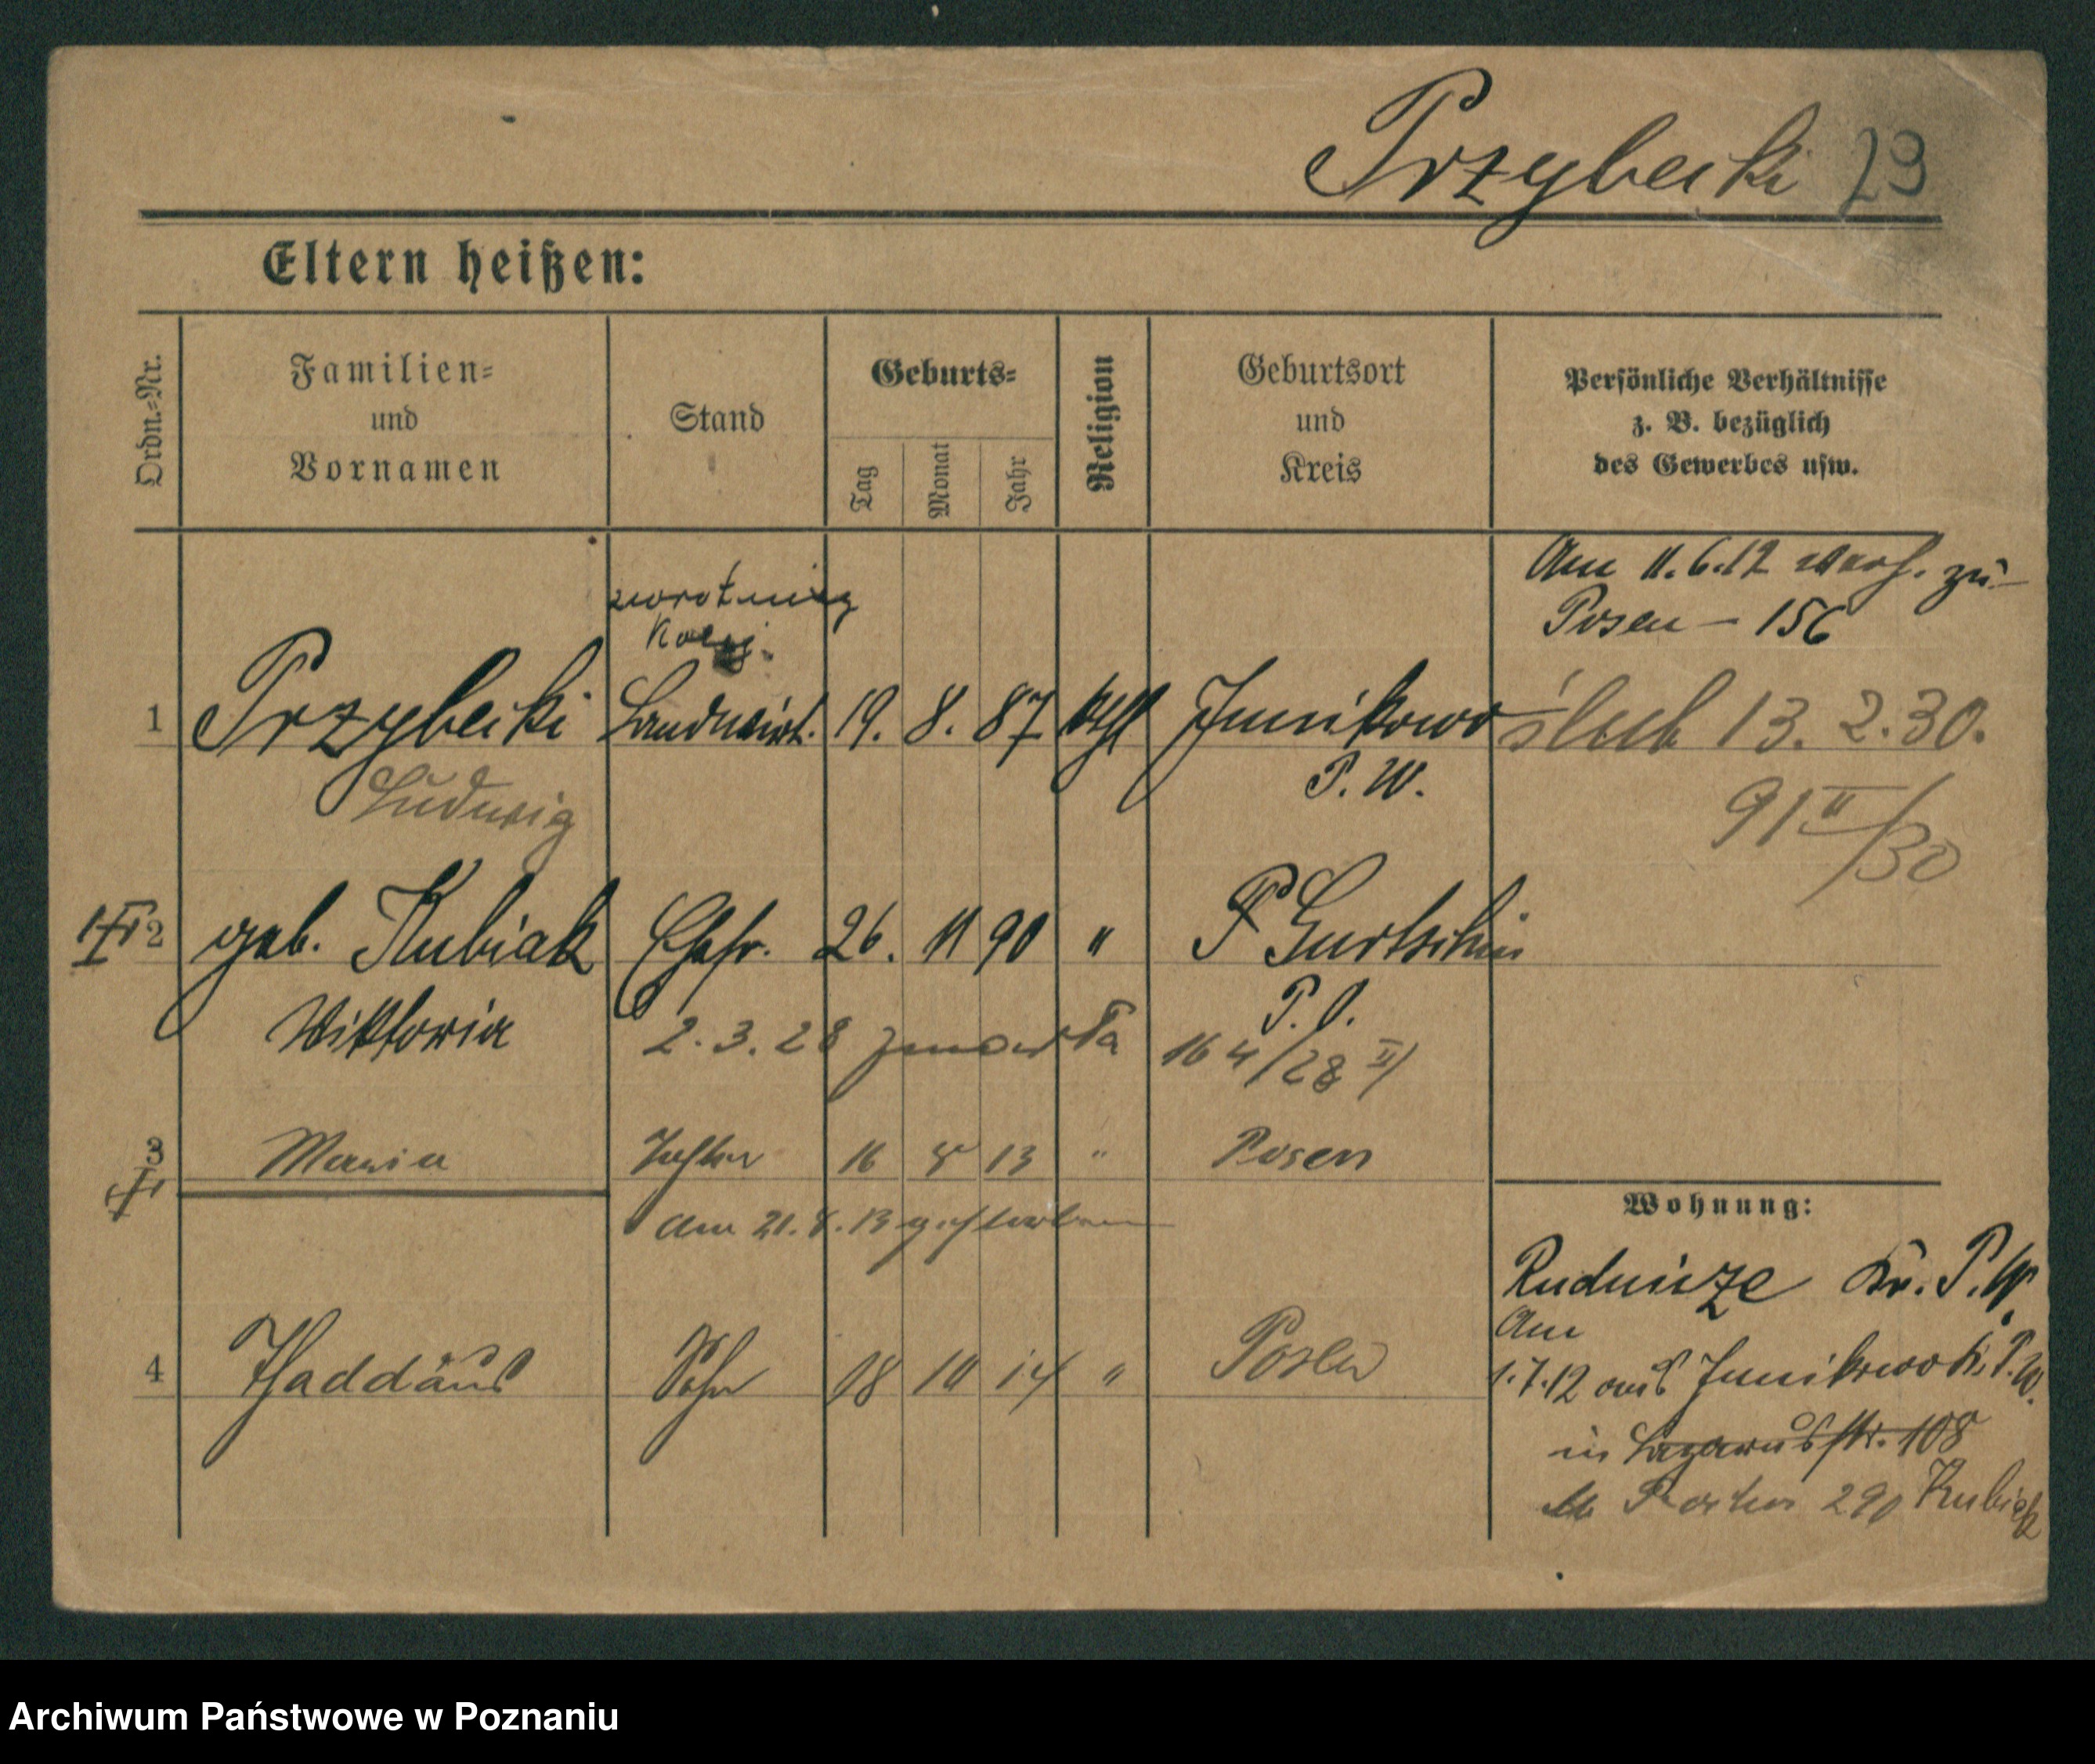 Przybecki 29
Eltern heißen:
Ordn.-Nr.
Familien-
und
Vornamen
Stand
Geburts-
Tag
Monat
Jahr
Religion
Geburtsort
und
Kreis
Persönliche Verhältnisse
z. B. bezüglich
des Gewerbes usw.
Am 11.6.12 zu
Posen – 156
zwrotniczy
kolej.
1 Przybecki Landwirt. 19. 8. 87 ktl Junikowo ślub 13. 2. 30.
Ludwig P. W. 91 II/30
2 geb. Kubiak Ehefr. 26. 11 90 " P Gurtschin
Wiktoria P. O.
2. 3. 28 zmarła 164/28 II
3 Maria Tochter 16 8 13 " Posen
am 21. 8. 13 gestorben
4 Thaddäus Sohn 18 10 14 " Posen
Wohnung:
Rudnicze Kr. P. W.
Am
1.7.12 aus Junikowo Kr. P. W.
in Lazarusstr. 108
290 Kubiak
Archiwum Państwowe w Poznaniu